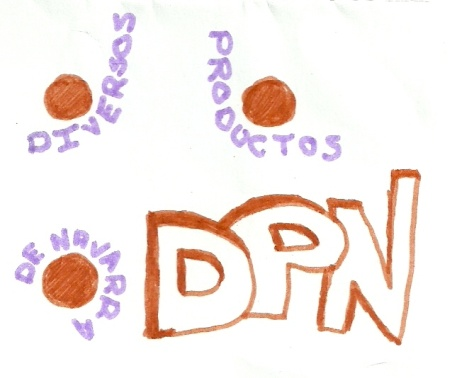 DIVERSOS
PRODUCTOS
DE NAVARRA
DPN